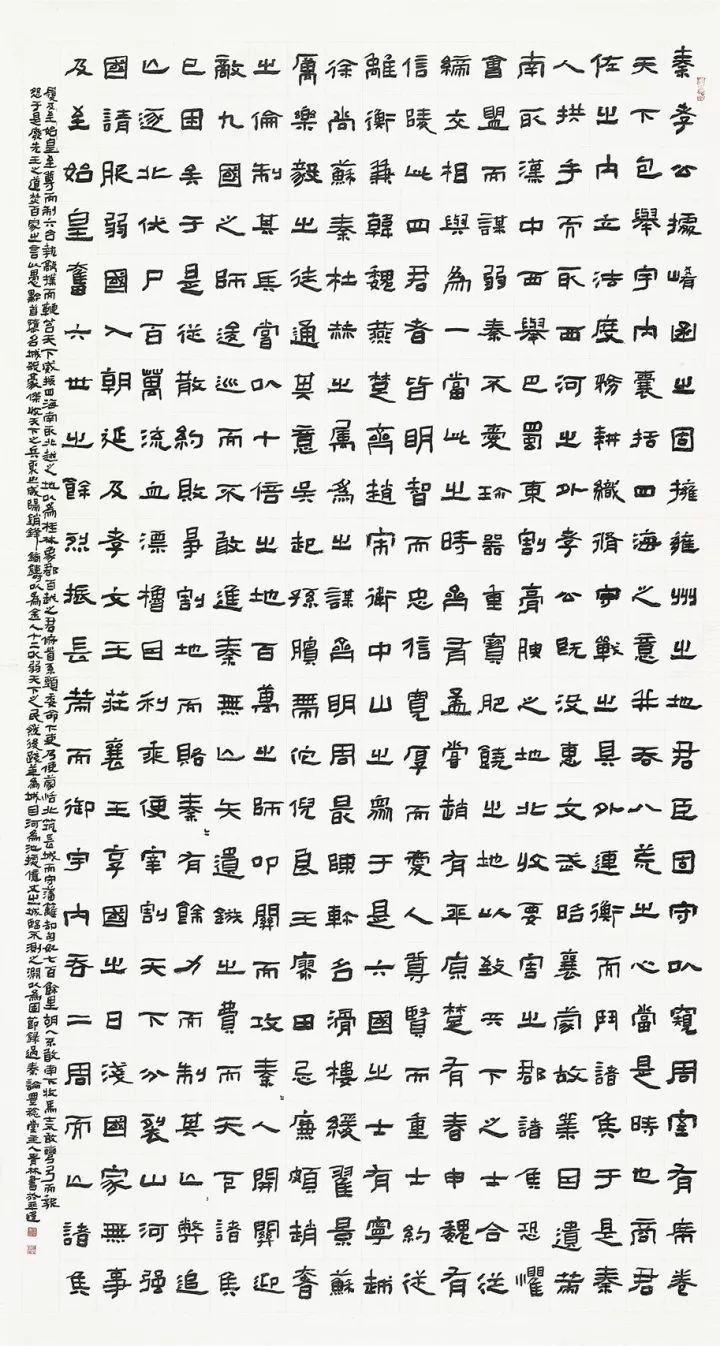 秦孝公據崤函之固擁雍州之地君臣固守以窺周室有席卷
天下包舉宇內囊括四海之意并吞八荒之心當是時也商君
佐之內立法度務耕織脩守戰之具外連衡而鬥諸侯于是秦
人拱手而取西河之外孝公既沒惠文武昭襄蒙故業因遺策
南取漢中西舉巴蜀東割膏腴之地北收要害之郡諸侯恐懼
會盟而謀弱秦不愛珍器重寶肥饒之地以致天下之士合從
締交相與為一當此之時齊有孟嘗趙有平原楚有春申魏有
信陵此四君者皆明智而忠信寬厚而愛人尊賢而重士約從
離衡兼韓魏燕楚齊趙宋衛中山之眾于是六國之士有寧越
徐尚蘇秦杜赫之屬為之謀齊明周最陳軫召滑樓緩翟景蘇
厲樂毅之徒通其意吳起孫臏帶佗倪良王廖田忌廉頗趙奢
之倫制其兵嘗以十倍之地百萬之師叩關而攻秦人開關迎
敵九國之師逡巡而不敢進秦無亡矢遺鏃之費而天下諸侯
已困矣于是從散約敗爭割地而賂秦有餘力而制其亡弊追
亡逐北伏尸百萬流血漂櫓因利乘便宰割天下分裂山河強
國請服弱國入朝延及孝文王莊襄王享國之日淺國家無事
及至始皇奮六世之餘烈振長策而御宇內吞二周而亡諸侯
履及至始皇至尊而制六合執敲撲而鞭笞天下威振四海南取北越之地以為桂林象郡百越之君俯首系頸委命下吏乃使蒙恬北筑長城而守藩籬卻匈奴七百餘里胡人不敢南下牧馬士敢彎弓而報
怨于是廢先王之道焚百家之言以愚黔首墮名城殺豪傑收天下之兵聚之咸陽銷鋒鏑鑄以為金人十二以弱天下之民然後踐華為城因河為池據億丈之城臨不測之淵以為固節錄過秦論豐堂主人貴林書於